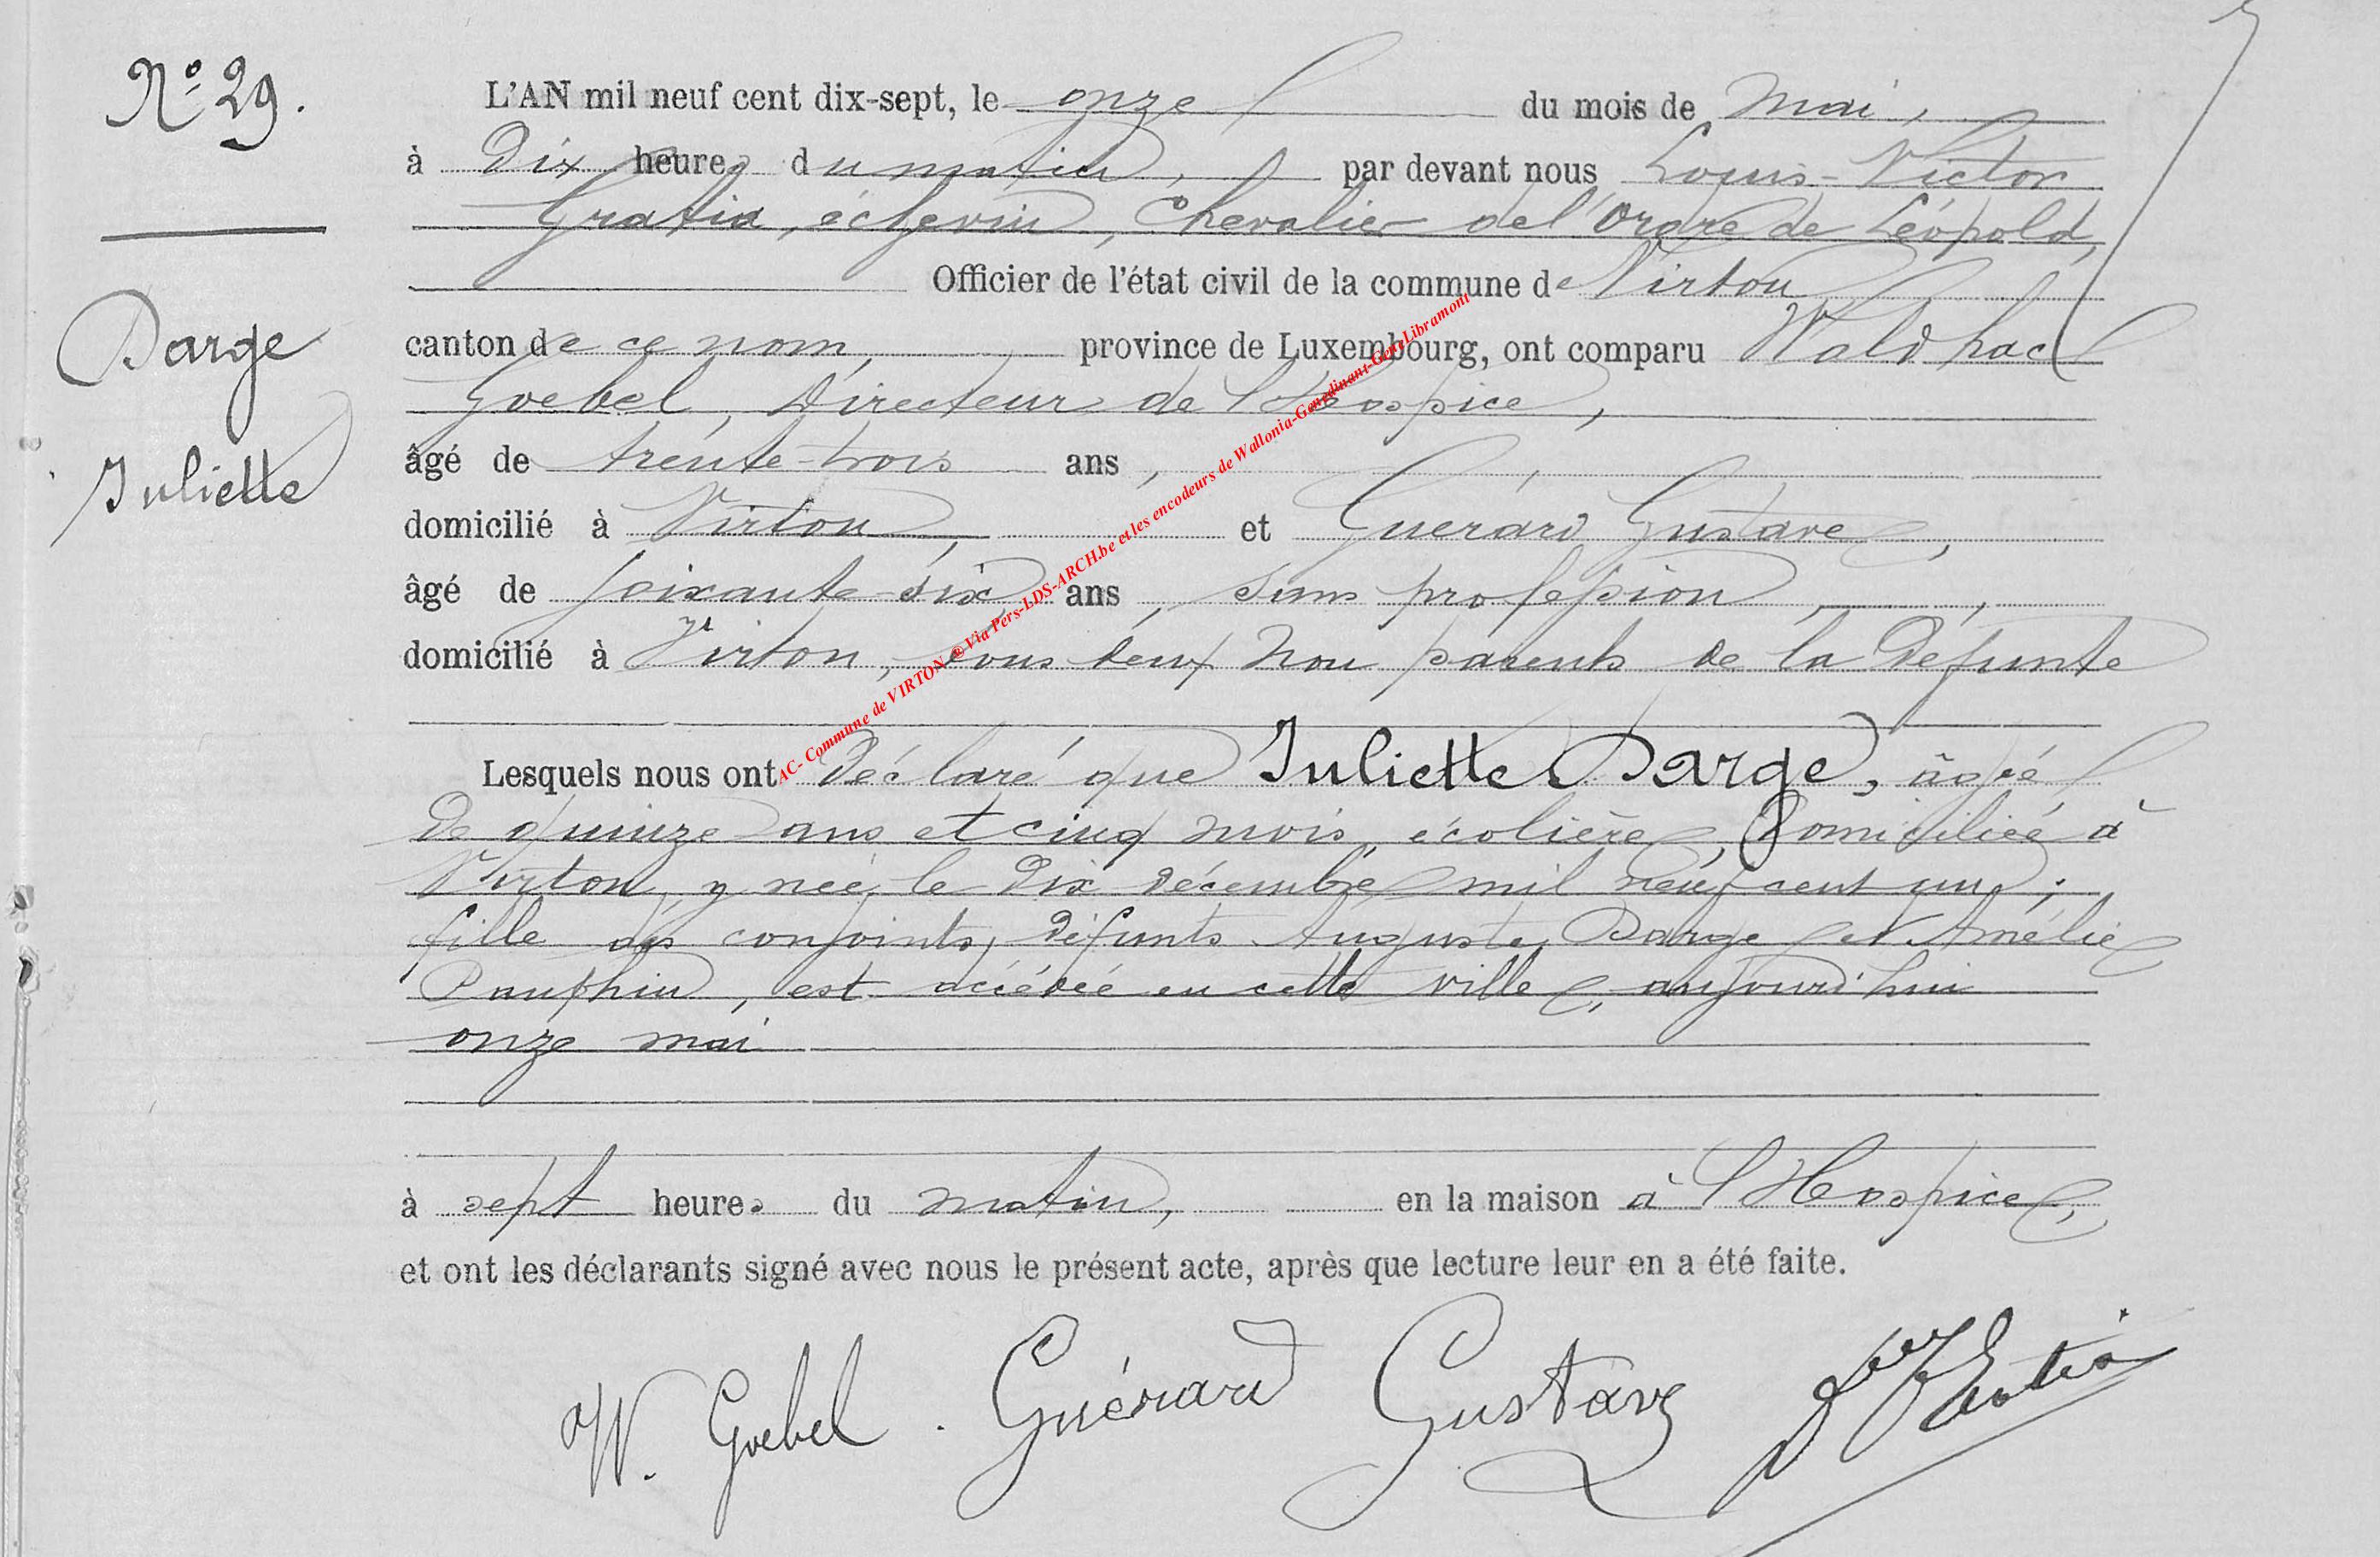 N° 29.
Darge
Juliette
L'AN mil neuf cent dix-sept, le onze du mois de mai,
à Dix heures du matin, par devant nous Louis-Victor
Gratia, échevin, Chevalier de l'Ordre de Léopold,
Officier de l'état civil de la commune de Virton
canton de ce nom, province de Luxembourg, ont comparu
Goebel, Directeur de l'Hospice,
âgé de trente-trois ans,
domicilié à Virton, et Guerard Gustave,
âgé de soixante-six ans, sans profession,
domicilié à Virton, tous deux non parents de la Défunte
Lesquels nous ont Déclaré que Juliette Darge, âgée
De quinze ans et cinq mois, écolière, Domiciliée à
Virton, y née, le Dix décembre mil neuf cent un;
fille des conjoints, défunts Auguste Darge et Amélie
Pauphin, est décédée en cette ville, aujourd'hui
onze mai
à sept heures du matin, en la maison à l'Hospice,
et ont les déclarants signé avec nous le présent acte, après que lecture leur en a été faite.
W. Goebel. Guérard Gustave Gratia
AC- Commune de VIRTON ®Via Pers-LDS-ARCH.be et les encodeurs de Wallonia-Genedinant-GeneLibramont